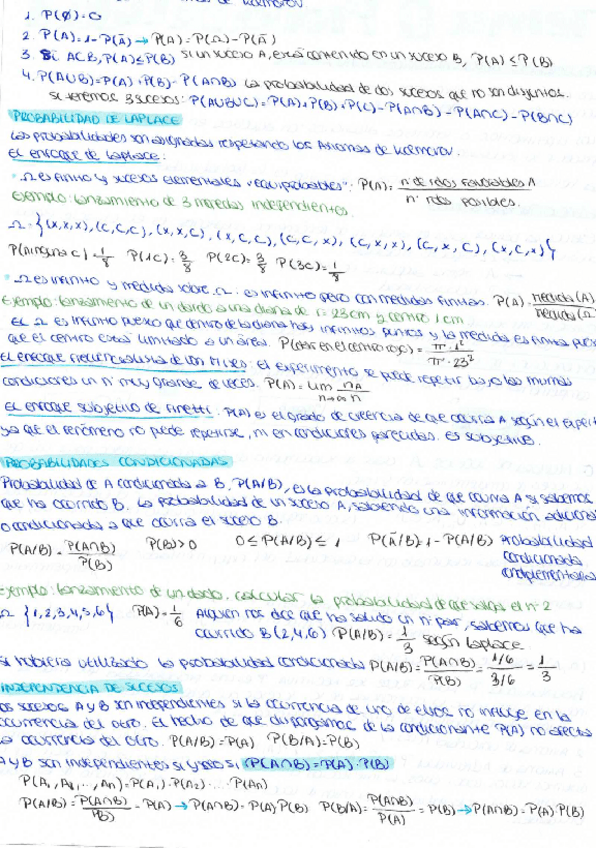 1. P(Ø)=0
2. P(A)=1-P(Ā) → P(A)=P(Ω)-P(Ā)
3. Si ACB, P(A)≤P(B) si un suceso A, está contenido en un suceso B, P(A) ≤ P(B)
4. P(AUB)=P(A)+P(B)-P(A∩B) la probabilidad de dos sucesos que no son disjuntos.
si tenemos 3 sucesos: P(AUBUC)=P(A)+P(B)+P(C)-P(A∩B)-P(A∩C)-P(B∩C)
PROBABILIDAD DE LAPLACE
Las probabilidades son asignadas respetando los Axiomas de Kolmorov.
El enfoque de Laplace:
• Ω es finito y sucesos elementales "equiprobables": P(A)= nº de rdos favorables A / nº rdos posibles.
Ejemplo: lanzamiento de 3 monedas independientes.
Ω={(x,x,x),(c,c,c),(x,x,c),(x,c,c),(c,c,x),(c,x,x),(c,x,c),(x,c,x)}
P(ninguna c)=1/8 P(1c)=3/8 P(2c)=3/8 P(3c)=1/8
• Ω es infinito y medida sobre Ω: es infinito pero con medidas finitas. P(A)= medida(A) / medida(Ω
Ejemplo: lanzamiento de un dardo a una diana de r=23cm y centro 1cm
El Ω es infinito puesto que dentro de la diana hay infinitos puntos y la medida es finita pues
que el centro está limitado a un área. P(dar en el centro rojo)= π·1² / π·23²
El enfoque frecuencialista de Von Mises: el experimento se puede repetir bajo las mismas
condiciones un nº muy grande de veces. P(A)= lim n→∞ nA/n
El enfoque subjetivo de Finetti: P(A) es el grado de creencia de que ocurra A según el expert
ya que el fenómeno no puede repetirse, ni en condiciones parecidas. es subjetivo.
PROBABILIDADES CONDICIONADAS
Probabilidad de A condicionada a B, P(A/B), es la probabilidad de que ocurra A si sabemos
que ha ocurrido B. La probabilidad de un suceso A, sabiendo una información adicional
o condicionada a que ocurra el suceso B.
P(A/B)= P(A∩B)/P(B) P(B)>0 0≤P(A/B)≤1 P(Ā/B)=1-P(A/B) Probabilidad
condicionada
complementaria
Ejemplo: lanzamiento de un dado. calcular la probabilidad de que salga el nº 2
Ω {1,2,3,4,5,6} P(A)=1/6 Alguien nos dice que ha salido un nº par, sabemos que ha
ocurrido B(2,4,6) P(A/B)=1/3 según Laplace.
si hubiera utilizado la probabilidad condicionada P(A/B)= P(A∩B)/P(B) = 1/6 / 3/6 = 1/3
INDEPENDENCIA DE SUCESOS
os sucesos A y B son independientes si la ocurrencia de uno de ellos no influye en la
ocurrencia del otro. El hecho de que dispongamos de la condicionante P(A) no afecta
la ocurrencia del otro. P(A/B)=P(A) P(B/A)=P(B)
A y B son independientes si y solo si P(A∩B)=P(A)·P(B)
P(A₁,A₂,...,An)=P(A₁)·P(A₂)·...·P(An)
P(A/B)= P(A∩B)/P(B) = P(A) → P(A∩B)=P(A)·P(B) P(B/A)= P(A∩B)/P(A) = P(B) → P(A∩B)=P(A)·P(B)